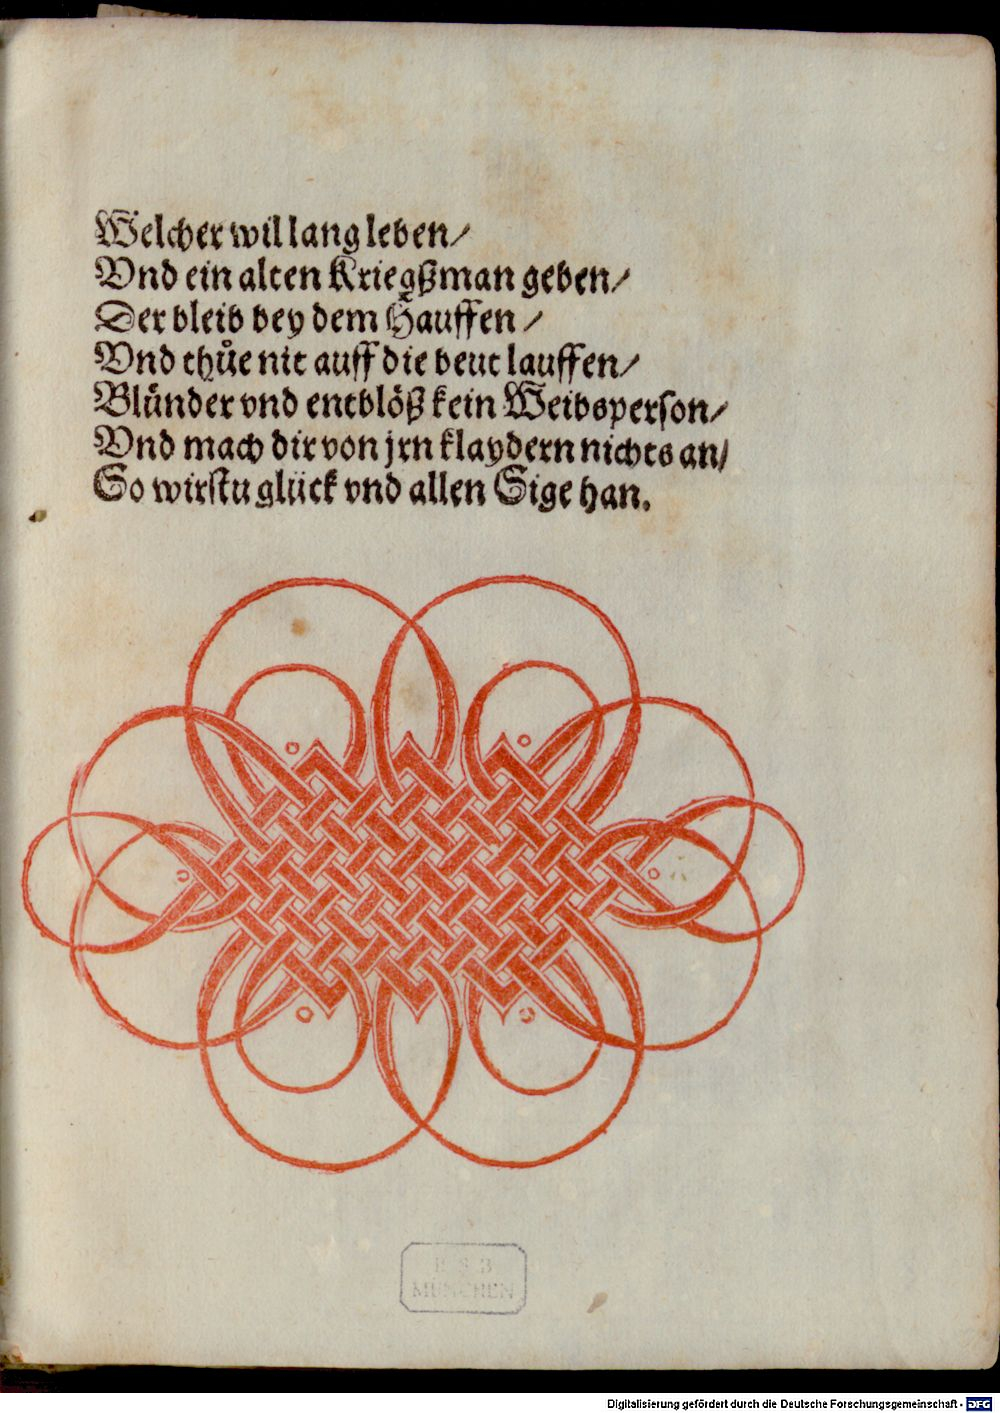 Welcher wil lang leben/
Vnd ein alten Kriegßman geben/
Der bleib bey dem Hauffen /
Vnd thůe nit auff die beut lauffen/
Blünder vnd entblöß kein Weibsperson/
Vnd mach dir von jrn klaydern nichts an/
So wirstu glück vnd allen Sige han.
B S B
MÜNCHEN
Digitalisierung gefördert durch die Deutsche Forschungsgemeinschaft - DFG